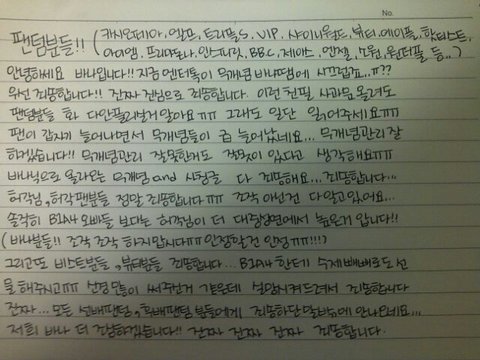 No.
팬덤분들!! (카시오페아, 엘프, 트리플S, VIP, 샤이니월드, 뷰티, 에이플, 핫티스트,
아이엠, 프리마돈나, 인스피릿, BBC, 제아스, 엔젤, 소원, 원더풀 등..)
안녕하세요 바나입니다!! 지금 멘터톡이 무개념 바나땜에 시끄럽죠..ㅠ??
우선 죄송합니다!! 진짜 진심으로 죄송합니다. 이런 친필 사과문 올려도
팬덤분들 화 다안풀리실거 알아요ㅠㅠ 그래도 일단 읽어주세요ㅠㅠ
팬이 갑자기 늘어나면서 무개념들이 좀 늘어났네요... 무개념관리 잘
하겠습니다!! 무개념관리 잘못한거도 잘못이 있다고 생각해요ㅠㅠ
바나닉으로 올라온 무개념 and 사칭글 다 죄송해요...죄송합니다...
허각님, 허각팬분들 정말 죄송합니다ㅠㅠ 조작 아닌건 다 알고있어요...
솔직히 B1A4 오빠들 보다는 허각님이 더 대중성면에서 높은거 입니다!!
(바나분들!! 조작 조작 하지맙시다ㅠㅠ 인정할건 인정ㅠㅠ!!!)
그리고또 비스트분들, 뷰티분들 죄송합니다... B1A4 한테 수제빼빼로도 선
물 해주시고ㅠㅠ 신경 많이 써주신거 같은데 실망시켜드려서 죄송합니다
진짜... 모든 선배팬덤, 후배팬덤 분들에게 죄송하단말밖에 안나오네요...
저희 바나 더 잘하겠습니다!! 진짜 진짜 진짜 죄송합니다.